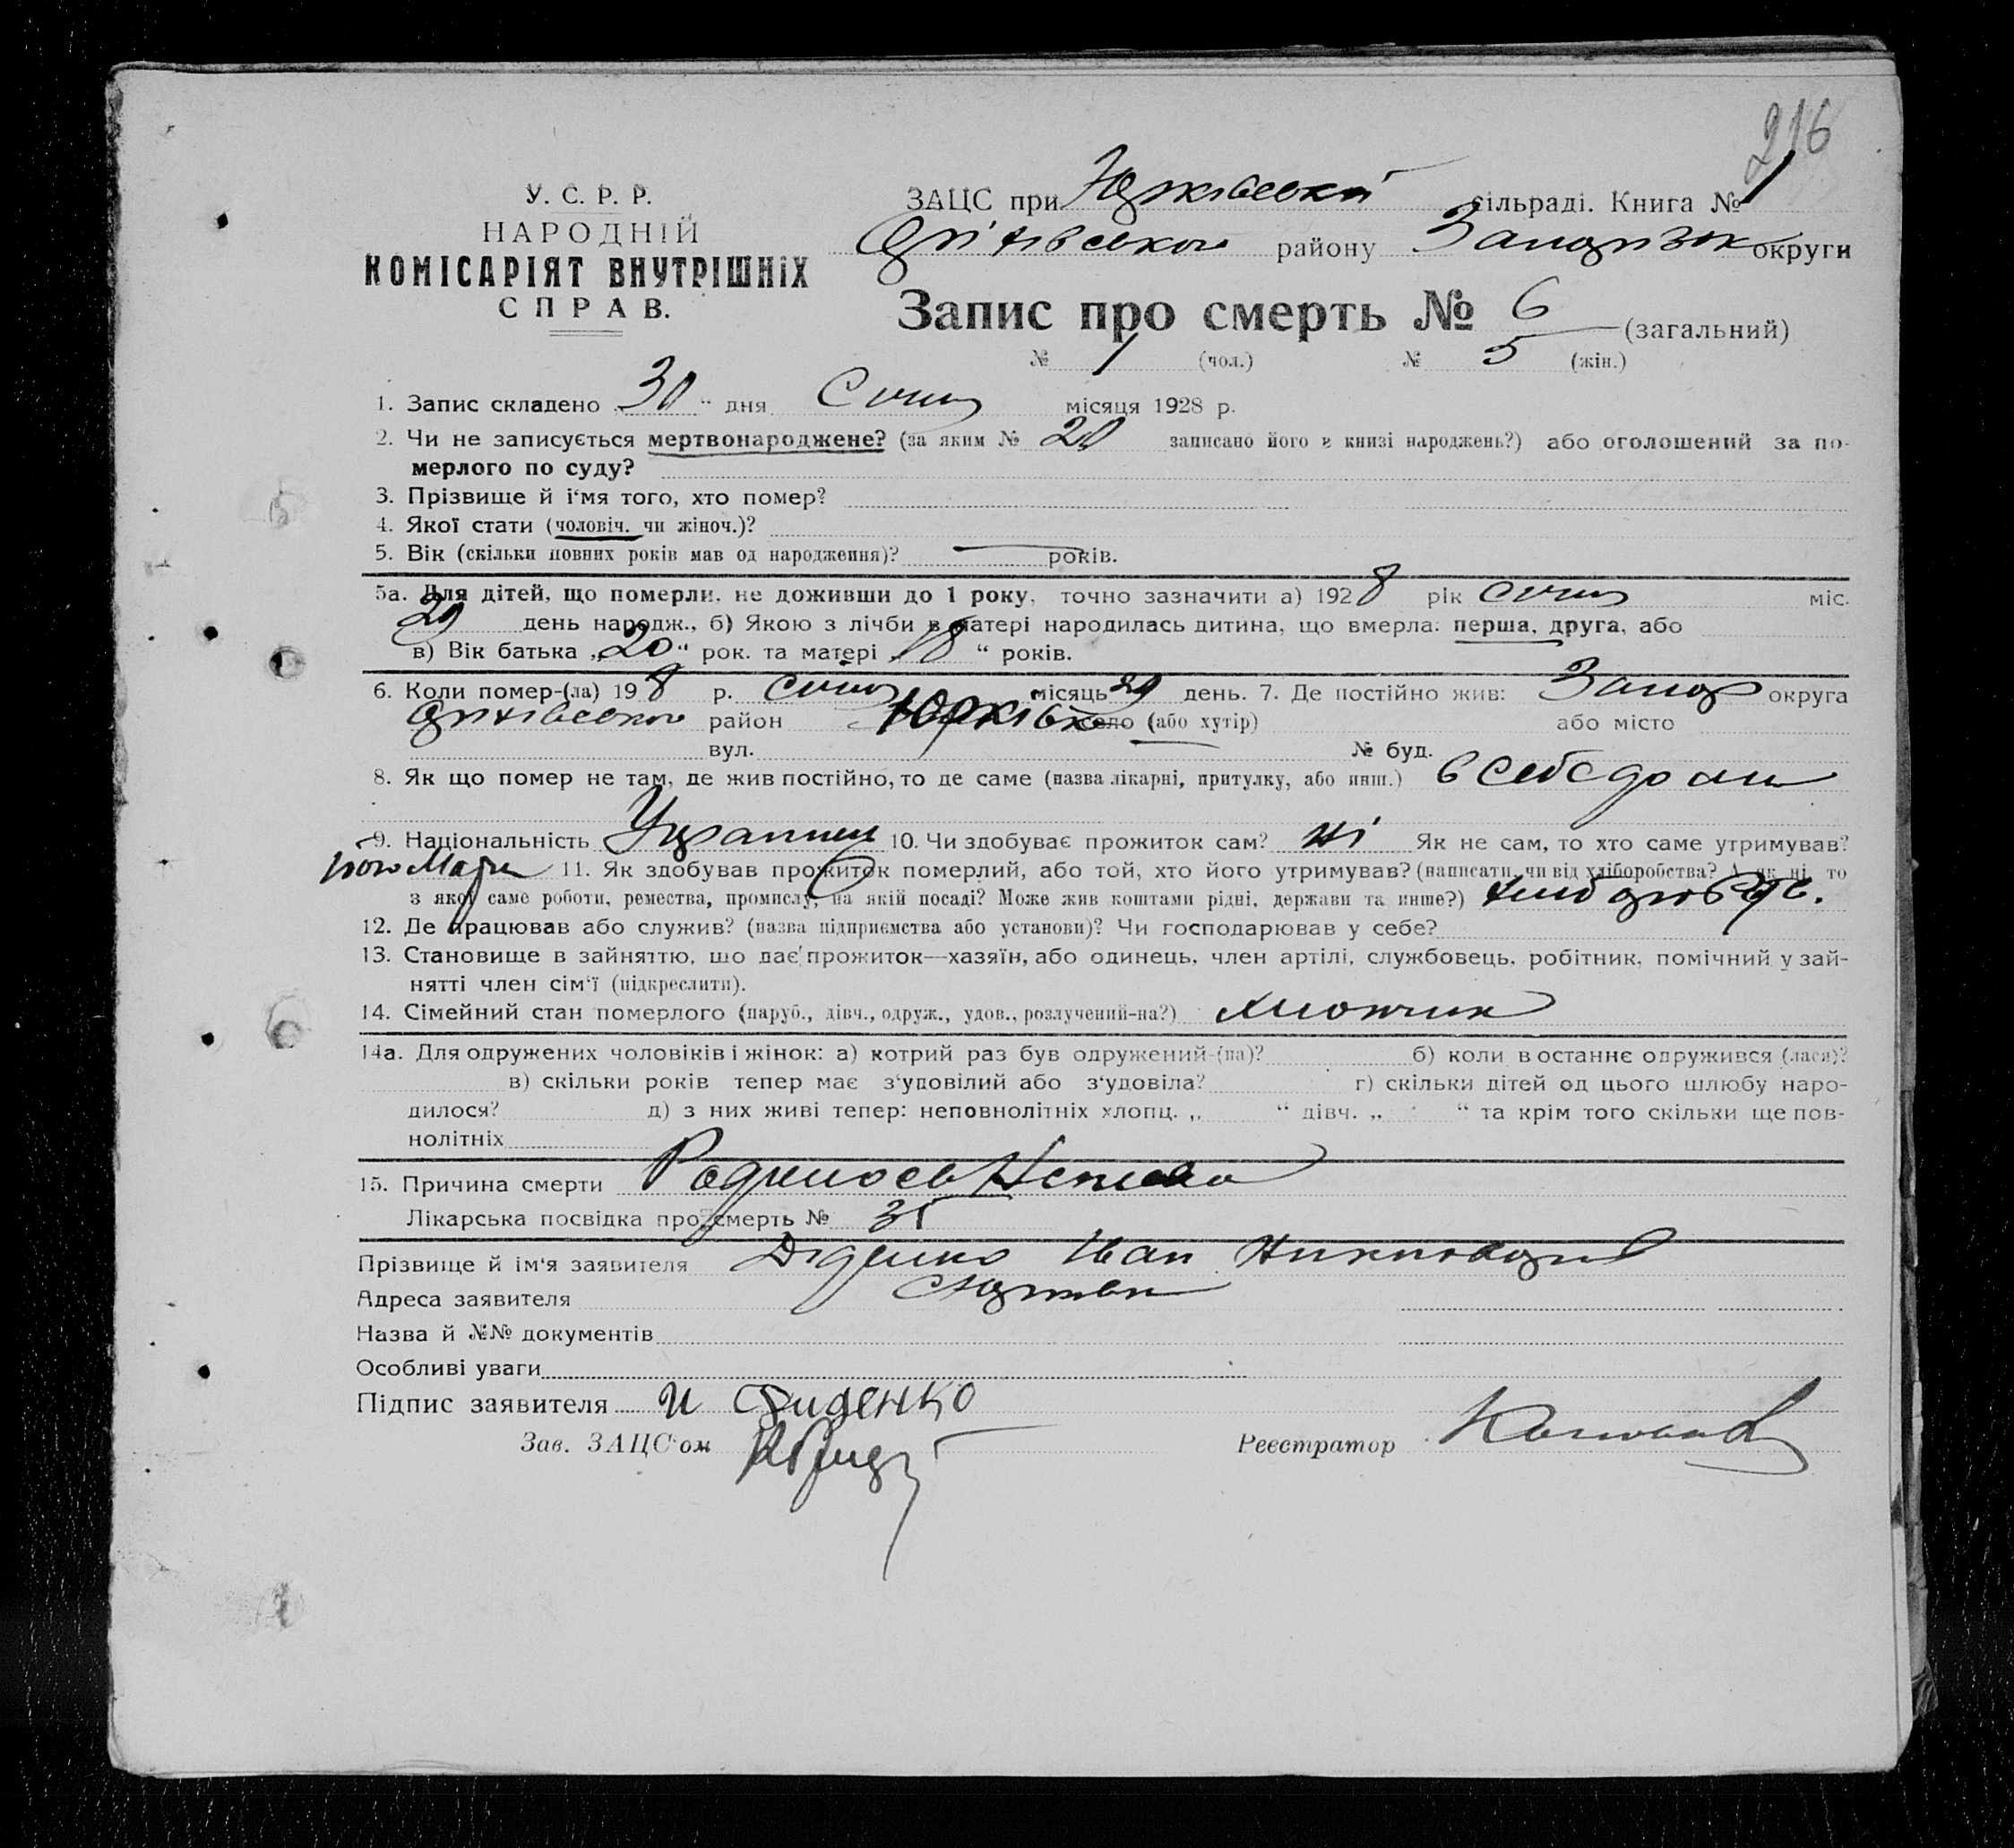 216
У. С. Р. Р.
НАРОДНІЙ
КОМІСАРІЯТ ВНУТРІШНІХ
СПРАВ.
ЗАЦС при Юрківській сільраді. Книга № 1
Оріхівського району Запоріжж округи
Запис про смерть № 6 (загальний)
№ 1 (чол.) № 5 (жін.)
1. Запис складено 30 " дня Січня місяця 1928 р.
2. Чи не записується мертвонароджене? (за яким № 20 записано його в книзі народжень?) або оголошений за по-
мерлого по суду?
3. Прізвище й і'мя того, хто помер?
4. Якої стати (чоловіч. чи жіноч.)?
5. Вік (скільки повних років мав од народження)? — років.
5а. Для дітей, що померли, не доживши до 1 року, точно зазначити а) 1928 рік Січня міс.
29 день народж., б) Якою з лічби в матері народилась дитина, що вмерла: перша, друга, або
в) Вік батька „20" рок. та матері „18 " років.
6. Коли помер-(ла) 19 8 р. Січня місяць 29 день. 7. Де постійно жив: Запор округа
Оріхівського район Юрківка село (або хутір) або місто
вул. № буд.
8. Як що помер не там, де жив постійно, то де саме (назва лікарні, притулку, або инш.) в себе дома
9. Національність 10. Чи здобуває прожиток сам? ні Як не сам, то хто саме утримував?
його 11. Як здобував прожиток померлий, або той, хто його утримував? (написати, чи від хліборобства? А як ні, то
з якої саме роботи, ремества, промислу, на якій посаді? Може жив коштами рідні, держави та инше?)
12. Де працював або служив? (назва підприємства або установи)? Чи господарював у себе?
13. Становище в зайняттю, що дає прожиток—хазяїн, або одинець, член артілі, службовець, робітник, помічний у зай-
нятті член сім'ї (підкреслити).
14. Сімейний стан померлого (паруб., дівч., одруж., удов., розлучений-на?) хлопчик
14а. Для одружених чоловіків і жінок: а) котрий раз був одружений-(на)? б) коли в останнє одружився (лася)?
в) скільки років тепер має з'уповілий або з'удовіла? г) скільки дітей од цього шлюбу наро-
дилося? д) з них живі тепер: неповнолітніх хлопц. „ " дівч. „ " та крім того скільки ще пов-
нолітніх
15. Причина смерти Родилось
Лікарська посвідка про смерть №
Прізвище й ім'я заявителя Діденко Іван
Адреса заявителя
Назва й №№ документів
Особливі уваги
Підпис заявителя И Диденко
Зав. ЗАЦС'ом
Реєстратор